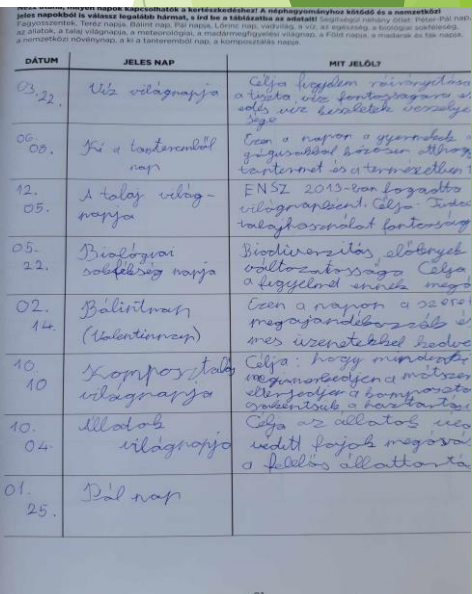 Nézz utána, milyen napok kapcsolhatók a kertészkedéshez! A néphagyományhoz kötődő és a nemzetközi
jeles napokból is válassz legalább hármat, s írd be a táblázatba az adatait! Segítségül néhány ötlet: Péter-Pál nap,
Fagyosszentek, Teréz napja, Bálint nap, Pál napja, Lőrinc nap, vadvilág, a víz, az egészség, a biológiai sokféleség,
az állatok, a talaj világnapja, a meteorológiai, a madármegfigyelési világnap, a Föld napja, a madarak és fák napja,
a nemzetközi növénynap, a ki a tanteremből nap, a komposztálás napja.
DÁTUM JELES NAP MIT JELÖL?
03.22. Víz világnapja Célja figyelem ráirányítása
a tiszta víz fontosságára és
édes víz készletek veszélye
sége
06. Ki a tanteremből nap Ezen a napon a gyermekek
tantermet és a természetben
12.05. A talaj világnapja ENSZ 2013-ban fogadta
világnapként. Célja:
talajhasználat fontosság
05.22. Biológiai sokféleség napja Biodiverzitás, élőlények
változatossága Célja
a figyelmet ennek megó
02.14. Bálintnap (Valentinnap) Ezen a napon a szere
megajándékozzák é
mes üzenetekkel kedve
10.10 Komposztálás világnapja Célja: hogy mindenki
megismerkedjen a módszer
elterjedjen a komposztá
csökkentsük a háztartás
10.04. Állatok világnapja Célja az állatok
védett fajok megóvá
a felelős állattartá
01.25. Pál nap